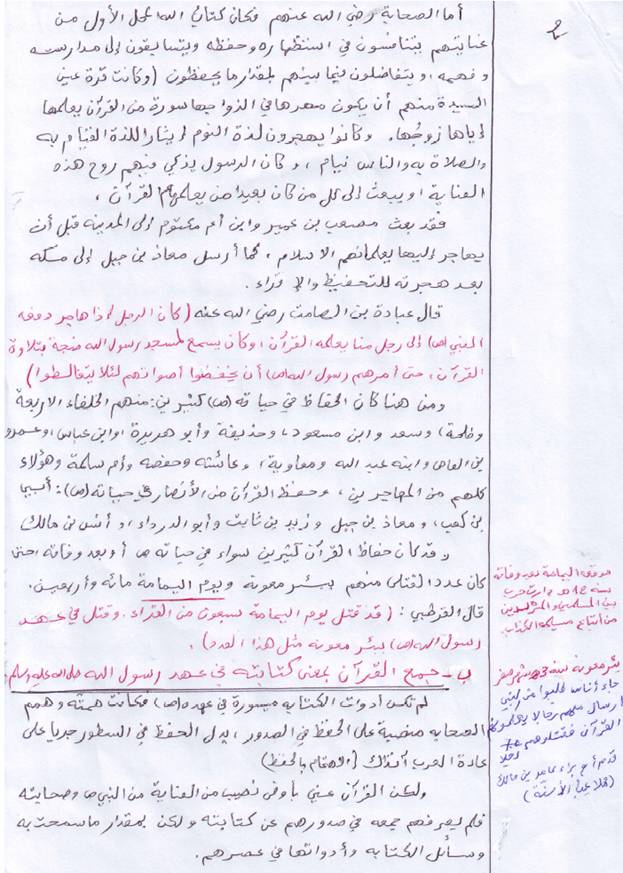 2
أما الصحابة رضي الله عنهم فكان كتاب الله المحل الأول من
عنايتهم يتنافسون في استظهاره وحفظه ويتسابقون إلى مدارسته
و فهمه، ويتفاضلون فيما بينهم بمقدار ما يحفظون (وكانت قرة عين
السيدة منهم أن يكون مهرها في الزواج سورة من القرآن يعلمها
إياها زوجها. وكانوا يهجرون لذة النوم إيثارا للذة القيام به
والصلاة به والناس نيام، وكان الرسول يذكي فيهم روح هذه
العناية ويبعث إلى كل من كان بعيدا من يعلمهم القرآن،
فقد بعث مصعب بن عمير وابن أم مكتوم إلى المدينة قبل أن
يهاجر إليها يعلمانهم الاسلام، كما أرسل معاذ بن جبل إلى مكة
بعد هجرته للتحفيظ والإقراء.
قال عبادة بن الصامت رضي الله عنه (كان الرجل إذا هاجر دفعه
النبي (ص) إلى رجل منا يعلمه القرآن، وكان يسمع لمسجد رسول الله ضجة بتلاوة
القرآن، حتى أمرهم رسول الله (ص) أن يخفضوا أصواتهم لئلا يتغالطوا)
ومن هنا كان الحفاظ في حياته (ص) كثيرين: منهم الخلفاء الاربعة
وطلحة، وسعد وابن مسعود، وحذيفة وأبو هريرة، وابن عباس، وعمرو
بن العاص وابنه عبد الله ومعاوية، وعائشة وحفصة وأم سلمة وهؤلاء
كلهم من المهاجرين، وحفظ القرآن من الأنصار في حياته (ص): أبي
بن كعب، ومعاذ بن جبل وزيد بن ثابت وأبو الدرداء، و أنس بن مالك
وقد كان حفاظ القرآن كثيرين سواء في حياته ص أو بعد وفاته، حتى
كان عدد القتلى منهم ببئر معونة ويوم اليمامة مائة وأربعين.
قال القرطبي: (قد قتل يوم اليمامة سبعون من القراء. وقتل في عهد
رسول الله (ص) ببئر معونة مثل هذا العدد).
ب- جمع القرآن بمعنى كتابته في عهد رسول الله صلى الله عليه وسلم:
لم تكن أدوات الكتابة ميسورة في عهده (ص) فكانت همته وهمم
الصحابة منصبة على الحفظ في الصدور، بدل الحفظ في السطور جريا على
عادة العرب آنذاك (الاهتمام بالحفظ)
ولكن القرآن عني بأوفى نصيب من العناية من النبي ص وصحابته
فلم يصرفهم جمعه في صدورهم عن كتابته ولكن بمقدار ما سمحت به
وسائل الكتابة وأدواتها في عصرهم.
موقعة اليمامة بعد وفاته
سنة 12هـ دارت حرب
بين المسلمين والمرتدين
من أتباع مسيلمة الكذاب
بئر معونة سنة 3 شهر صفر
جاء أناس طلبوا من النبي
إرسال منهم رجالا يعلمونهم
القرآن فقتلوهم 70 رجلا
قدم أبو براء عامر بن مالك
(ملاعب الأسنة)